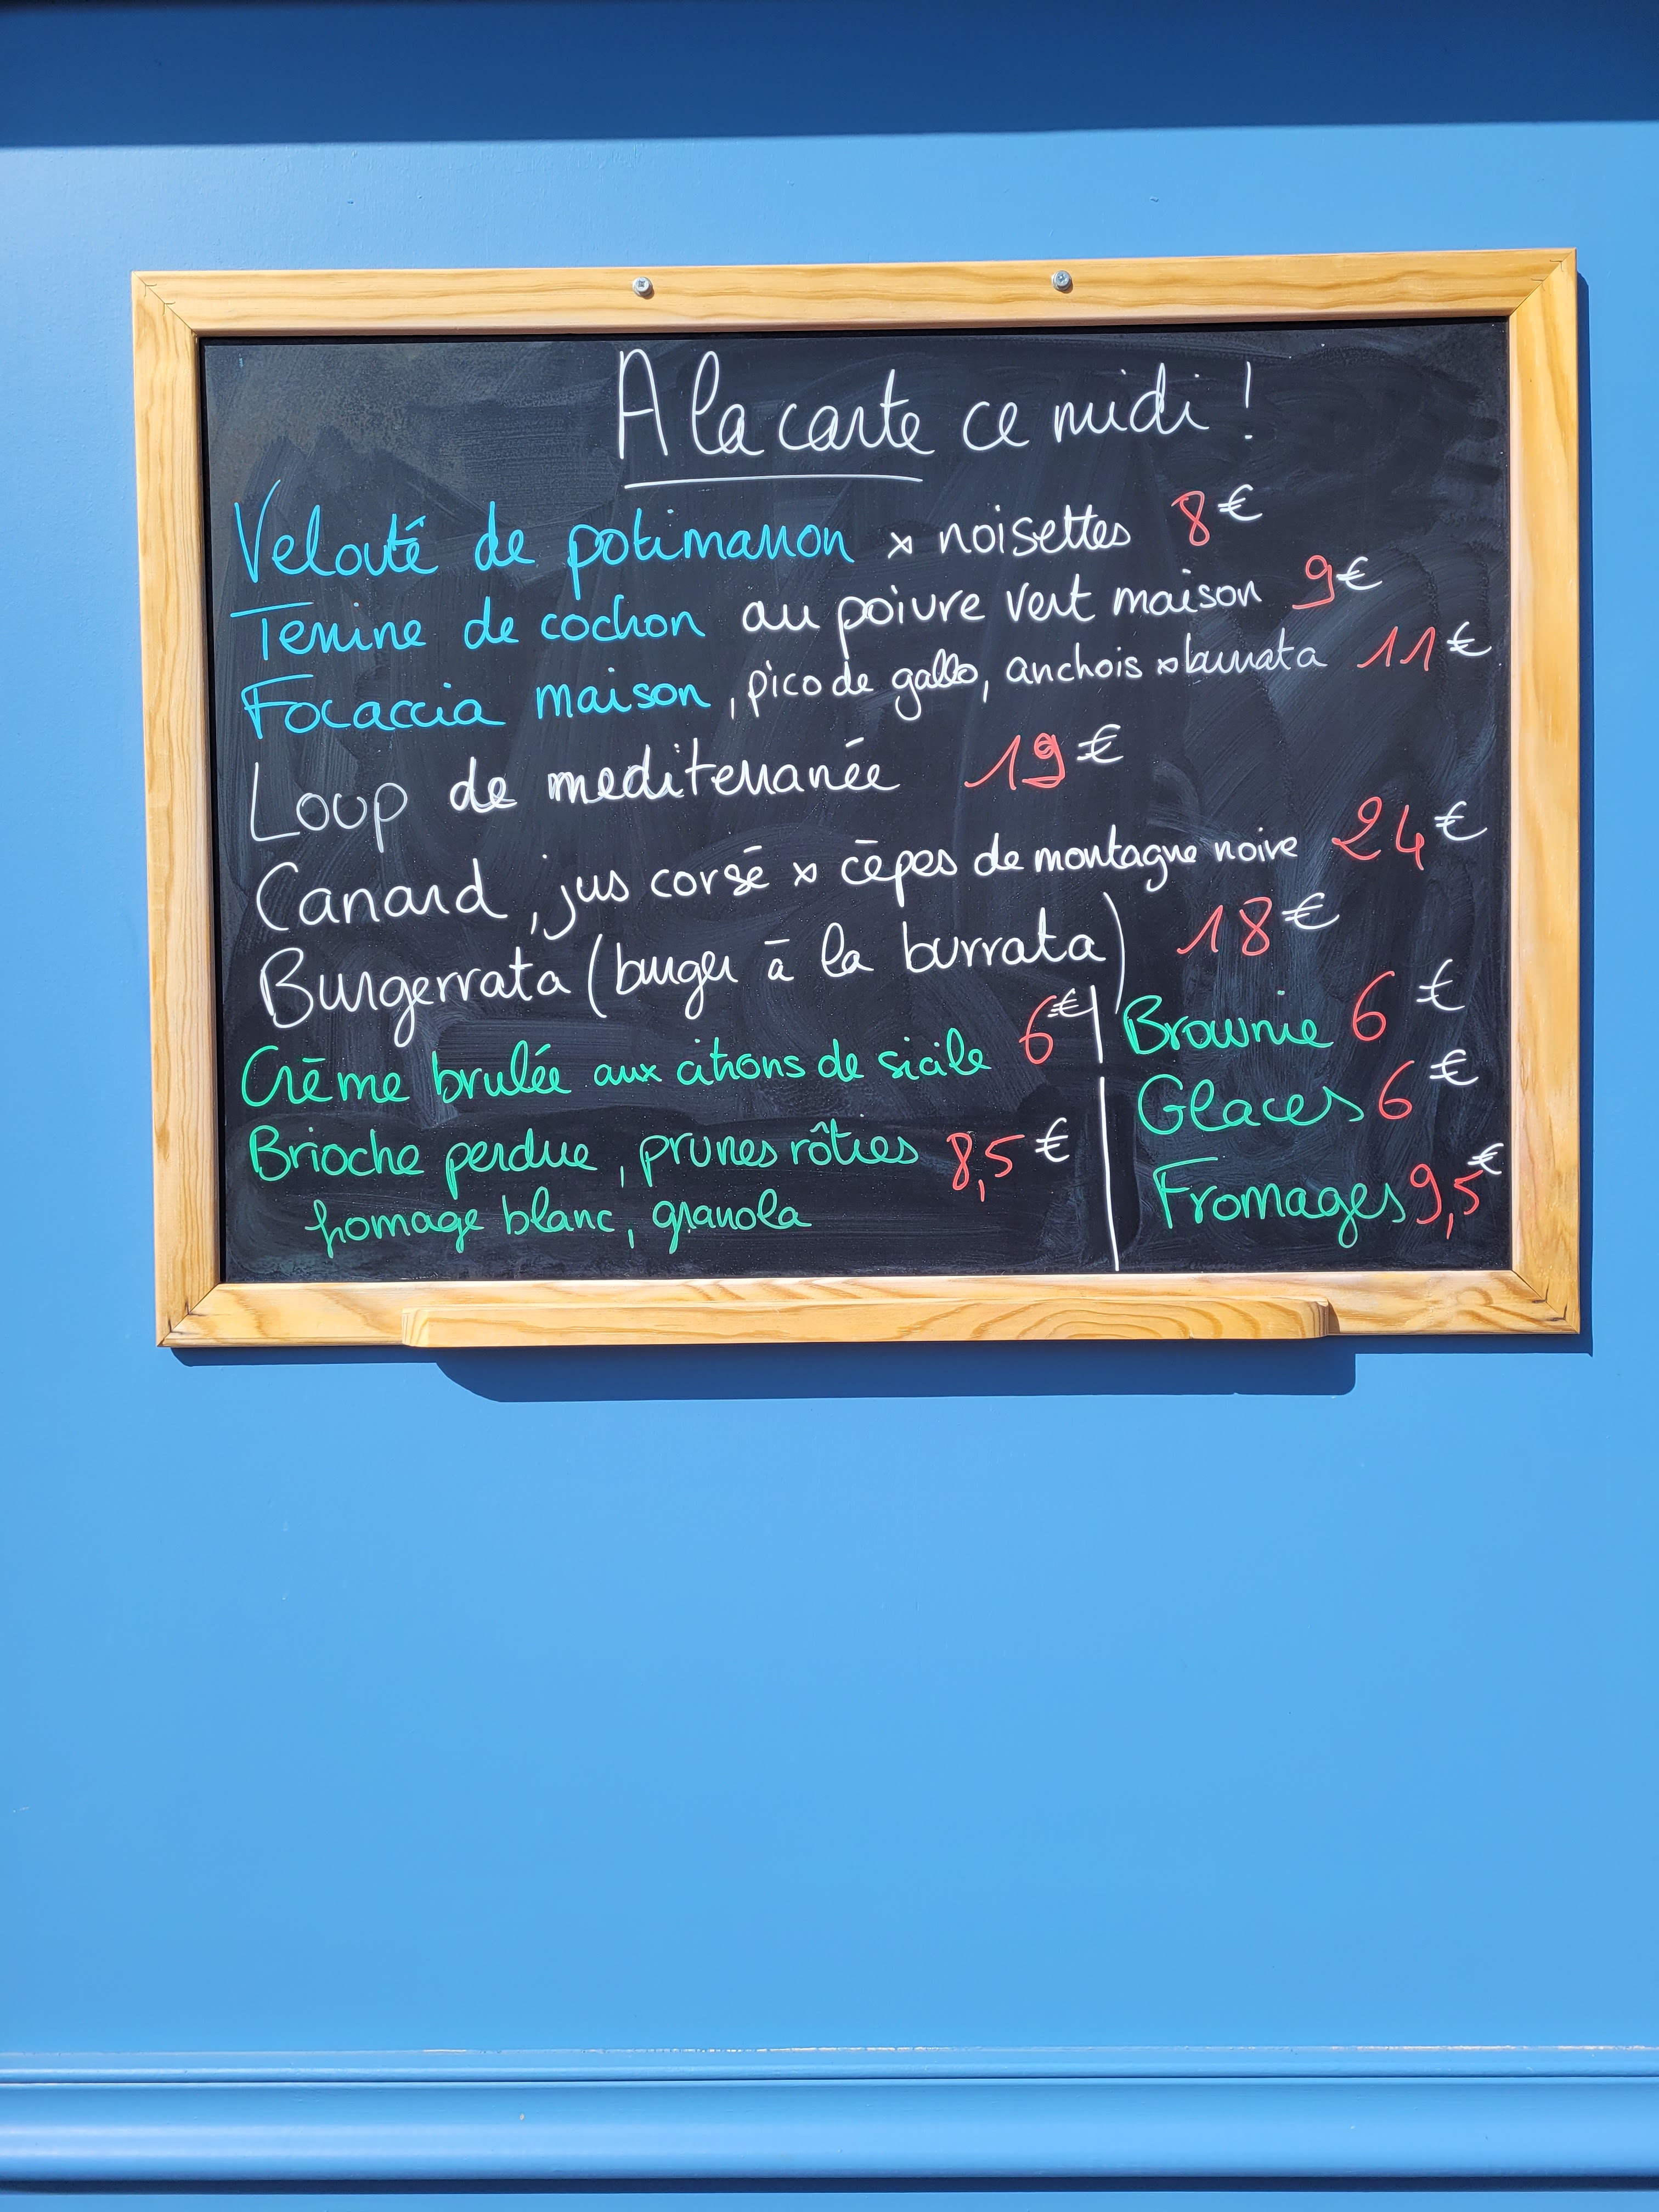 A la carte ce midi !
Velouté de potimarron x noisettes 8€
Terrine de cochon au poivre vert maison 9€
Focaccia maison, pico de gallo, anchois x burrata 11€
Loup de mediterranée 19€
Canard, jus corsé x cèpes de montagne noire 24€
Burgerrata (burger à la burrata) 18€
Crème brulée aux citrons de sicile 6€
Brioche perdue, prunes rôties 8,5€
fromage blanc, granola
Brownie 6€
Glaces 6€
Fromages 9,5€